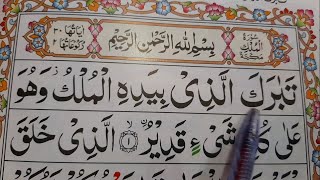 سُوْرَةُ الْمُلْكِ مَكِّيَّةٌ
بِسْمِ اللهِ الرَّحْمٰنِ الرَّحِيْمِ
اٰيَاتُهَا ٣٠ رُكُوْعَاتُهَا ٢
تَبٰرَكَ الَّذِیْ بِيَدِهِ الْمُلْكُ وَهُوَ
عَلٰی كُلِّ شَیْءٍ قَدِيْرُ ۙ﴿١﴾ الَّذِیْ خَلَقَ